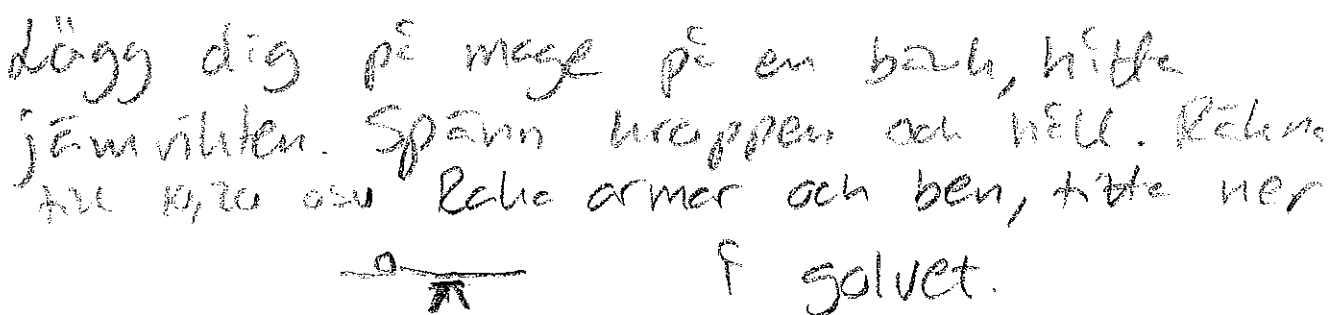 Lägg dig på mage på en bänk, hitta
jämvikten. Spänn kroppen och håll. Räkna
till 10, 20 osv Raka armar och ben, titta ner
i golvet.